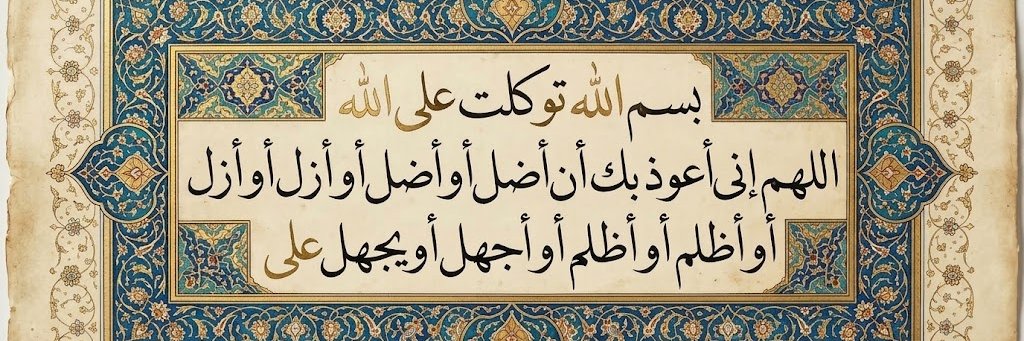 بسم الله توكلت على الله
اللهم إنى أعوذ بك أن أضل أو أضل أو أزل أو أزل
أو أظلم أو أظلم أو أجهل أو يجهل على